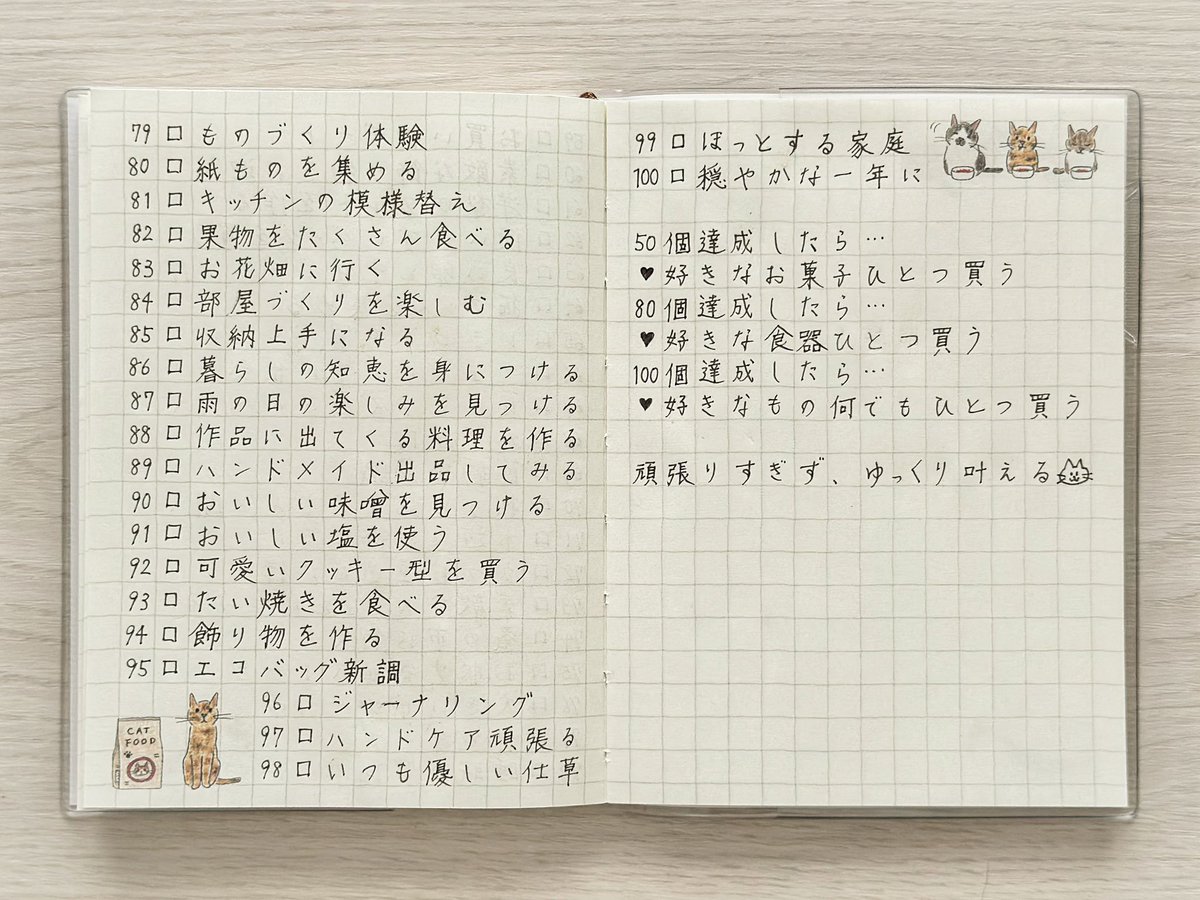 79 □ ものづくり体験
80 □ 紙ものを集める
81 □ キッチンの模様替え
82 □ 果物をたくさん食べる
83 □ お花畑に行く
84 □ 部屋づくりを楽しむ
85 □ 収納上手になる
86 □ 暮らしの知恵を身につける
87 □ 雨の日の楽しみを見つける
88 □ 作品に出てくる料理を作る
89 □ ハンドメイド出品してみる
90 □ おいしい味噌を見つける
91 □ おいしい塩を使う
92 □ 可愛いクッキー型を買う
93 □ たい焼きを食べる
94 □ 飾り物を作る
95 □ エコバッグ新調
96 □ ジャーナリング
97 □ ハンドケア頑張る
98 □ いつも優しい仕草
CAT
FOOD
99 □ ほっとする家庭
100 □ 穏やかな一年に
50個達成したら…
♥好きなお菓子ひとつ買う
80個達成したら…
♥好きな食器ひとつ買う
100個達成したら…
♥好きなもの何でもひとつ買う
頑張りすぎず、ゆっくり叶える